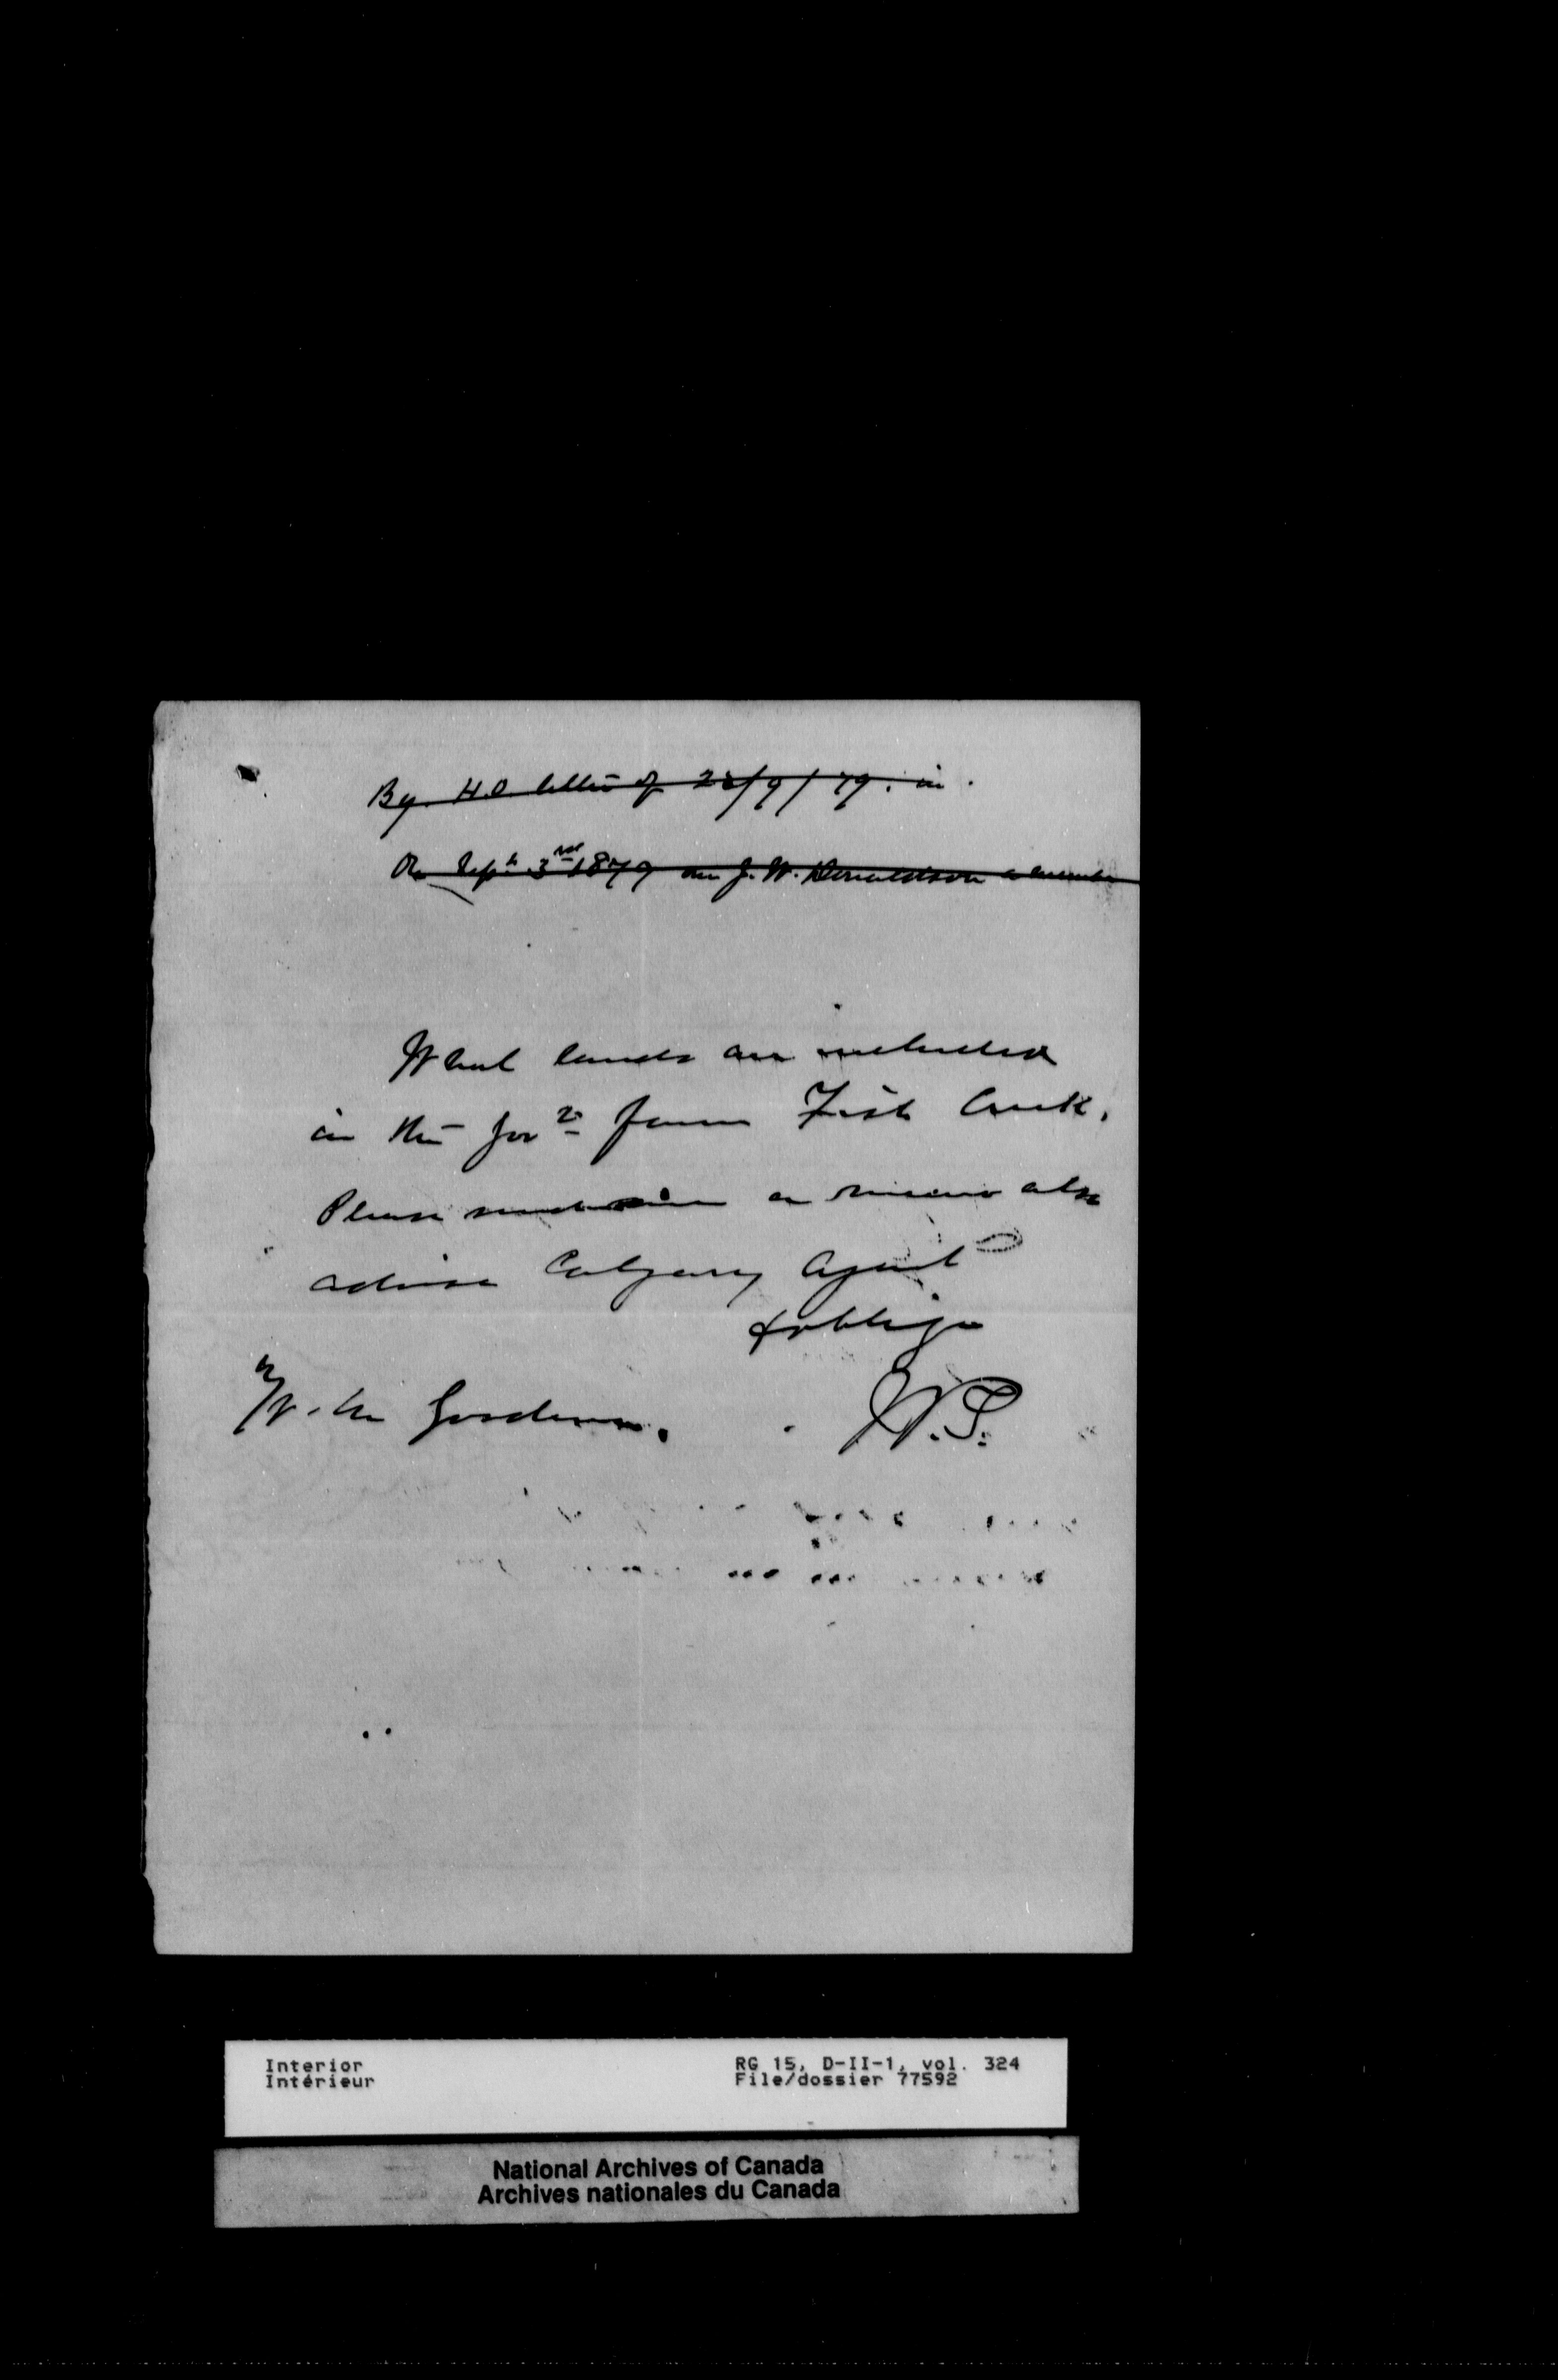 By H.O. letter of 22/9/79. in
On Sept 3rd 1879 one J. W. Donaldson a member
What lands are included
in the Gov^t farm Fish Creek.
Please send me a memo also
advise Calgary Agent
& oblige
W. M. Goodeve.
W.P.
Interior
Intérieur
RG 15, D-II-1, vol. 324
File/dossier 77592
National Archives of Canada
Archives nationales du Canada